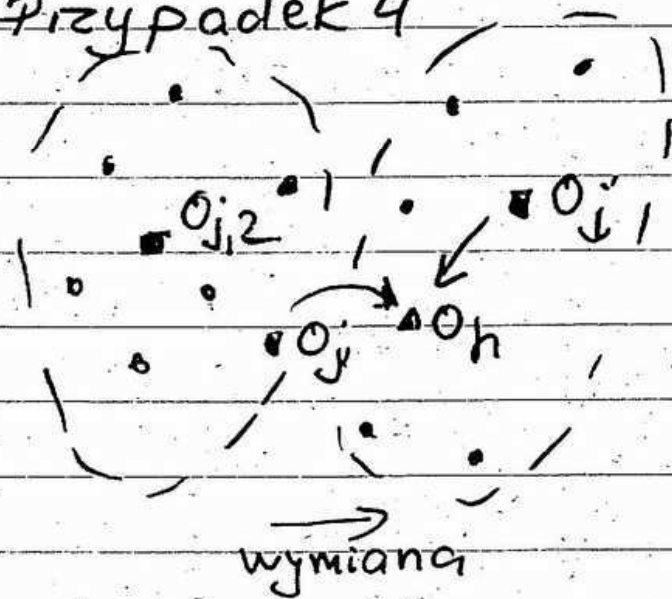 Przypadek 4
Oj,2
Oj
Oj
Oh
wymiana